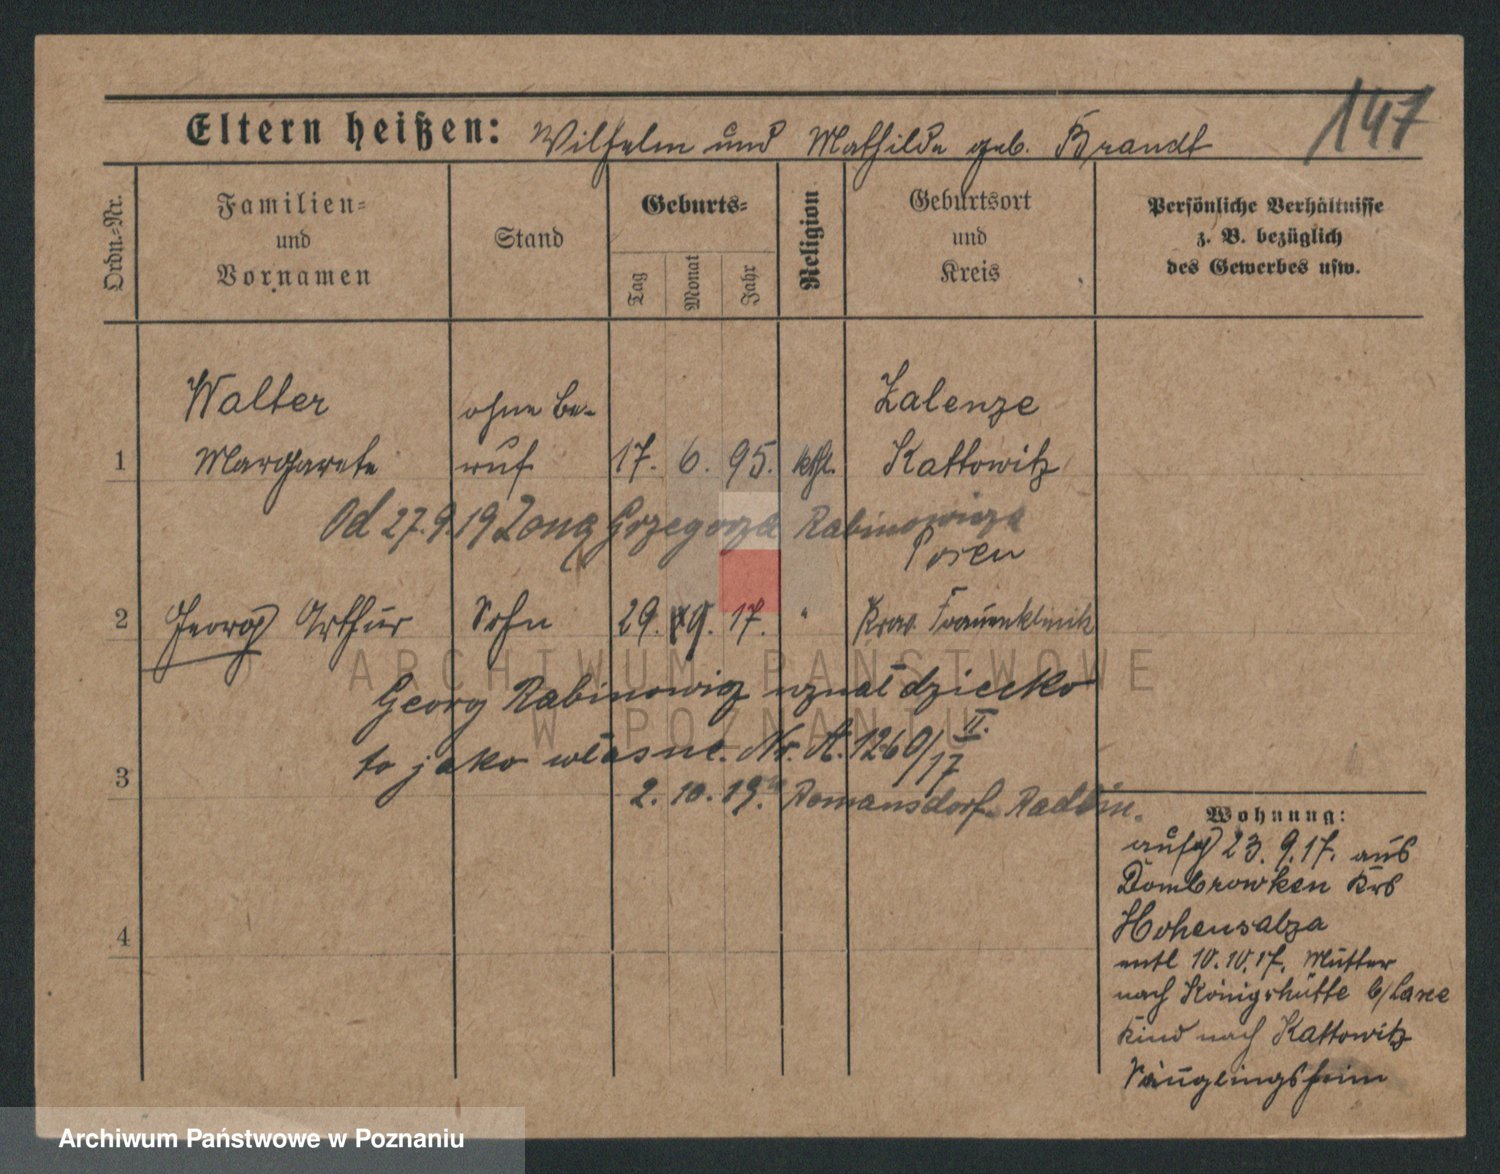 147
Eltern heißen: Wilhelm und Mathilde geb. Brandt
Ordn.-Nr.
Familien-
und
Vornamen
Stand
Geburts-
Tag
Monat
Jahr
Religion
Geburtsort
und
Kreis
Persönliche Verhältnisse
z. B. bezüglich
des Gewerbes usw.
Walter ohne Be- Zalenze
1 Margarete ruf 17. 6. 95. kth. Kattowitz
Od 27.9.19 Żona Grzegorza Rabinowicza
Posen
2 Georg Arthur Sohn 29. 17. " Frauenklinik
Georg Rabinowicz uznał dziecko
to jako własne. Nr. A. 1260/17 II.
3
2. 10. 19. Romansdorf Radlin.
Wohnung:
23. 9. 17. aus
Dombrowken Krs
Hohensalza
4
entl 10.10.17. Mutter
nach Königshütte
Kind nach Kattowitz
Säuglingsheim
ARCHIWUM PAŃSTWOWE
W POZNANIU
Archiwum Państwowe w Poznaniu